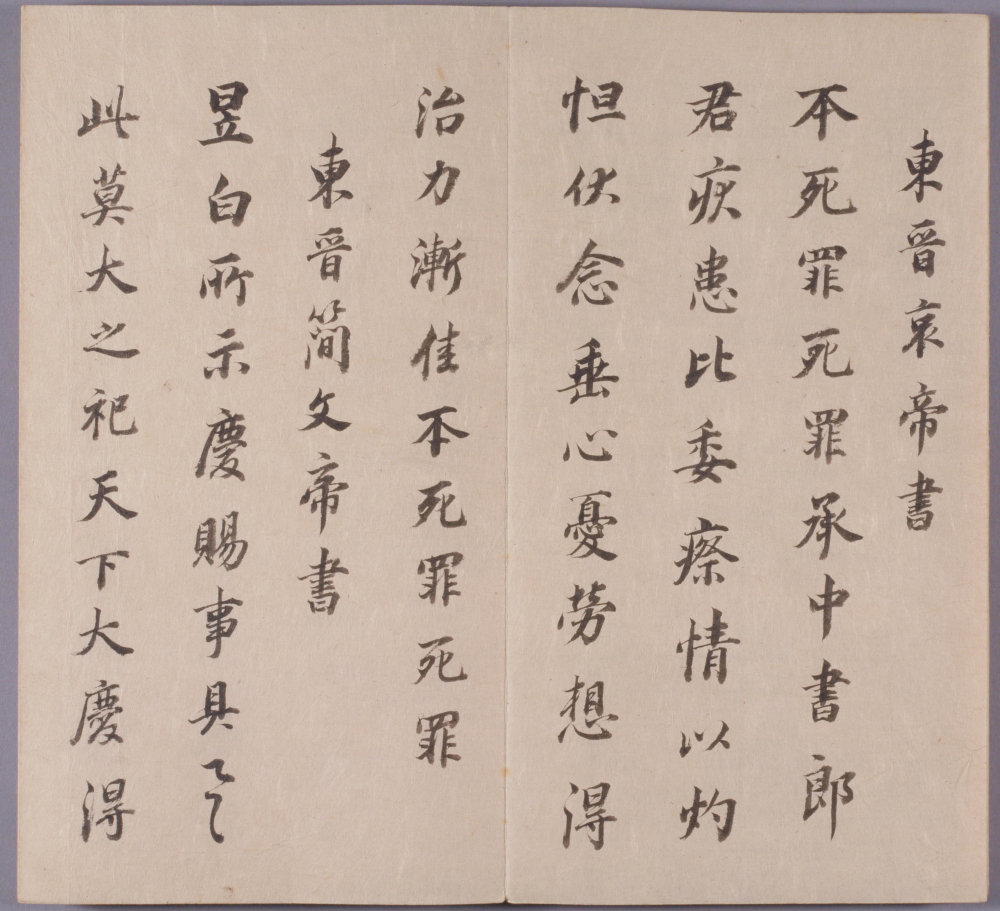 東晉哀帝書
不死罪死罪承中書郎
君疾患比委瘵情以灼
怛伏念垂心憂勞想得
治力漸佳不死罪死罪
東晉簡文帝書
昱白所示慶賜事具之
此莫大之祀天下大慶得